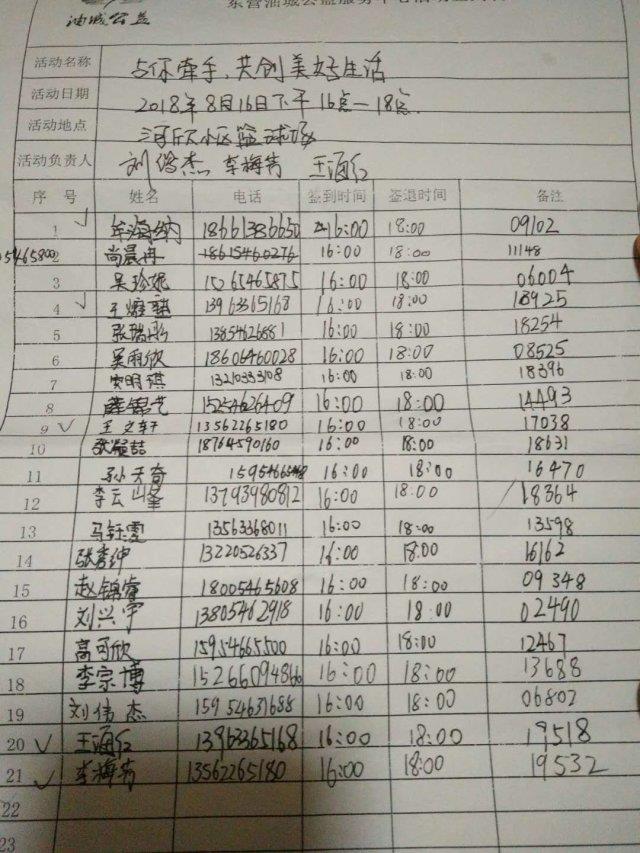 油城公益
活动名称 与你牵手,共创美好生活
活动日期 2018年8月16日下午16点—18点
活动地点 小区篮球场
活动负责人 刘伟杰 李梅青 王海红
序 号 姓名 电话 签到时间 签退时间 备注
1 ✓ 18661386650 16:00 18:00 09102
2 尚晨冉 18615460276 16:00 18:00 11148
3 吴珍妮 15065465875 16:00 18:00 06004
4 ✓ 13963365168 16:00 18:00 18925
5 张瑞彤 13854626881 16:00 18:00 18254
6 吴雨欣 18606460028 16:00 18:00 08525
7 宋明祺 13210333108 16:00 18:00 18396
8 15254626409 16:00 18:00 14493
9 ✓ 王文轩 13562265180 16:00 18:00 17038
10 18764590160 16:00 18:00 18631
11 孙天奇 16:00 18:00 16470
12 李云峰 13793980812 16:00 18:00 18364
13 马钰雯 13563368011 16:00 18:00 13598
14 13220526337 16:00 18:00 16162
15 赵锦睿 18005465608 16:00 18:00 09348
16 刘兴宇 13805462918 16:00 18:00 02490
17 高可欣 15954665500 16:00 18:00 12467
18 李宗博 15266094866 16:00 18:00 13688
19 刘伟杰 15954631688 16:00 18:00 06802
20 ✓ 王海红 13963365168 16:00 18:00 19518
21 ✓ 李梅青 13562265180 16:00 18:00 19532
22
23